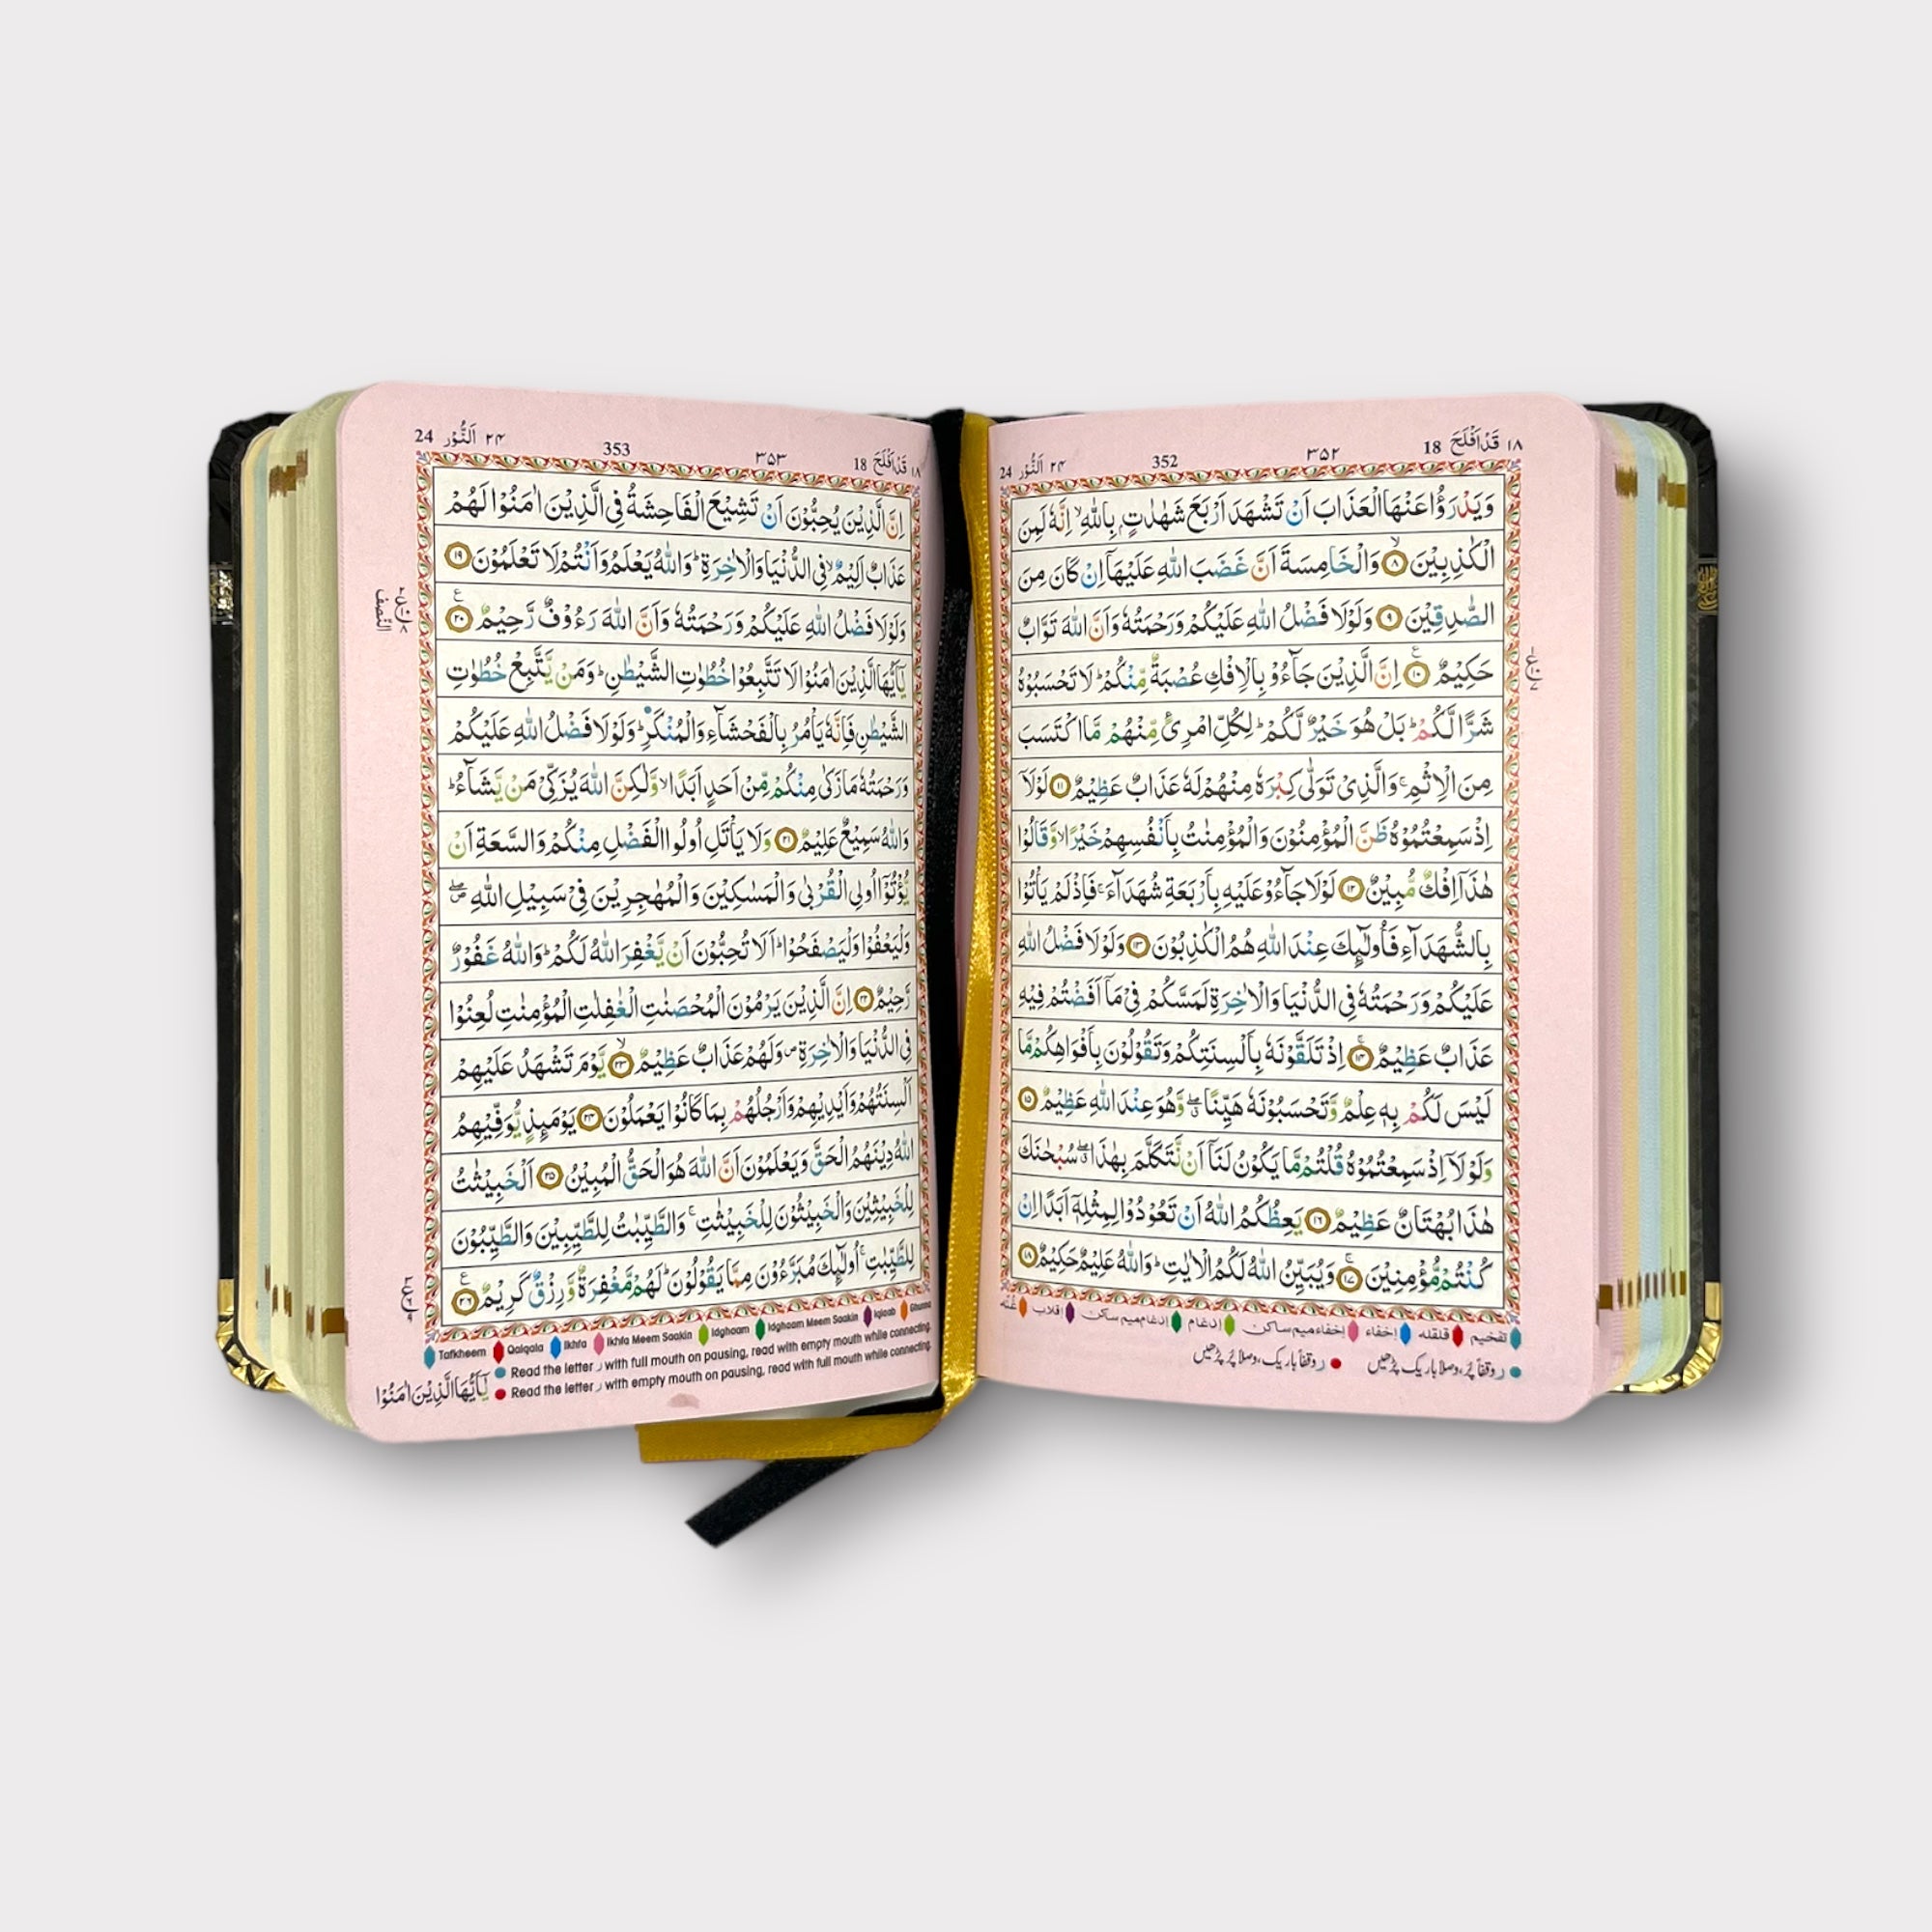 ١٨ قَدْاَفْلَحَ 18 ٣٥٢ 352 ٢٤ اَلنُّوْر 24
وَيَدْرَؤُا عَنْهَا الْعَذَابَ اَنْ تَشْهَدَ اَرْبَعَ شَهٰدٰتٍۭ بِاللّٰهِ ۙ اِنَّهٗ لَمِنَ
الْكٰذِبِيْنَ ۙ‏ ٨ وَالْخَامِسَةَ اَنَّ غَضَبَ اللّٰهِ عَلَيْهَاۤ اِنْ كَانَ مِنَ
الصّٰدِقِيْنَ ٩ وَلَوْلَا فَضْلُ اللّٰهِ عَلَيْكُمْ وَرَحْمَتُهٗ وَاَنَّ اللّٰهَ تَوَّابٌ
حَكِيْمٌ ١٠ اِنَّ الَّذِيْنَ جَآءُوْ بِالْاِفْكِ عُصْبَةٌ مِّنْكُمْ ؕ لَا تَحْسَبُوْهُ
شَرًّا لَّكُمْ ؕ بَلْ هُوَ خَيْرٌ لَّكُمْ ؕ لِكُلِّ امْرِئٍ مِّنْهُمْ مَّا اكْتَسَبَ
مِنَ الْاِثْمِ ۚ وَالَّذِيْ تَوَلّٰى كِبْرَهٗ مِنْهُمْ لَهٗ عَذَابٌ عَظِيْمٌ ١١ لَوْلَاۤ
اِذْ سَمِعْتُمُوْهُ ظَنَّ الْمُؤْمِنُوْنَ وَالْمُؤْمِنٰتُ بِاَنْفُسِهِمْ خَيْرًا ۙ وَّقَالُوْا
هٰذَاۤ اِفْكٌ مُّبِيْنٌ ١٢ لَوْلَا جَآءُوْ عَلَيْهِ بِاَرْبَعَةِ شُهَدَآءَ ۚ فَاِذْ لَمْ يَاْتُوْا
بِالشُّهَدَآءِ فَاُولٰٓئِكَ عِنْدَ اللّٰهِ هُمُ الْكٰذِبُوْنَ ١٣ وَلَوْلَا فَضْلُ اللّٰهِ
عَلَيْكُمْ وَرَحْمَتُهٗ فِي الدُّنْيَا وَالْاٰخِرَةِ لَمَسَّكُمْ فِيْ مَاۤ اَفَضْتُمْ فِيْهِ
عَذَابٌ عَظِيْمٌ ۚ ١٤ اِذْ تَلَقَّوْنَهٗ بِاَلْسِنَتِكُمْ وَتَقُوْلُوْنَ بِاَفْوَاهِكُمْ مَّا
لَيْسَ لَكُمْ بِهٖ عِلْمٌ وَّتَحْسَبُوْنَهٗ هَيِّنًا ۖۗ وَّهُوَ عِنْدَ اللّٰهِ عَظِيْمٌ ١٥
وَلَوْلَاۤ اِذْ سَمِعْتُمُوْهُ قُلْتُمْ مَّا يَكُوْنُ لَنَاۤ اَنْ نَّتَكَلَّمَ بِهٰذَا ۖۗ سُبْحٰنَكَ
هٰذَا بُهْتَانٌ عَظِيْمٌ ١٦ يَعِظُكُمُ اللّٰهُ اَنْ تَعُوْدُوْا لِمِثْلِهٖۤ اَبَدًا اِنْ
كُنْتُمْ مُّؤْمِنِيْنَ ۚ ١٧ وَيُبَيِّنُ اللّٰهُ لَكُمُ الْاٰيٰتِ ؕ وَاللّٰهُ عَلِيْمٌ حَكِيْمٌ ١٨
تفخيم قلقله إخفاء إخفاءميم ساكن إدغام إدغام ميم ساكن اقلاب غُنّه
ر وقفاً پُر، وصلاً باریک پڑھیں ر وقفاً باریک، وصلاً پُر پڑھیں
١٨ قَدْاَفْلَحَ 18 ٣٥٣ 353 ٢٤ اَلنُّوْر 24
اِنَّ الَّذِيْنَ يُحِبُّوْنَ اَنْ تَشِيْعَ الْفَاحِشَةُ فِي الَّذِيْنَ اٰمَنُوْا لَهُمْ
عَذَابٌ اَلِيْمٌ ۙ فِي الدُّنْيَا وَالْاٰخِرَةِ ؕ وَاللّٰهُ يَعْلَمُ وَاَنْتُمْ لَا تَعْلَمُوْنَ ١٩
وَلَوْلَا فَضْلُ اللّٰهِ عَلَيْكُمْ وَرَحْمَتُهٗ وَاَنَّ اللّٰهَ رَءُوْفٌ رَّحِيْمٌ ٢٠
النّصف
يٰۤاَيُّهَا الَّذِيْنَ اٰمَنُوْا لَا تَتَّبِعُوْا خُطُوٰتِ الشَّيْطٰنِ ؕ وَمَنْ يَّتَّبِعْ خُطُوٰتِ
الشَّيْطٰنِ فَاِنَّهٗ يَاْمُرُ بِالْفَحْشَآءِ وَالْمُنْكَرِ ؕ وَلَوْلَا فَضْلُ اللّٰهِ عَلَيْكُمْ
وَرَحْمَتُهٗ مَا زَكٰى مِنْكُمْ مِّنْ اَحَدٍ اَبَدًا ۙ وَّلٰكِنَّ اللّٰهَ يُزَكِّيْ مَنْ يَّشَآءُ ؕ
وَاللّٰهُ سَمِيْعٌ عَلِيْمٌ ٢١ وَلَا يَاْتَلِ اُولُوا الْفَضْلِ مِنْكُمْ وَالسَّعَةِ اَنْ
يُّؤْتُوْۤا اُولِي الْقُرْبٰى وَالْمَسٰكِيْنَ وَالْمُهٰجِرِيْنَ فِيْ سَبِيْلِ اللّٰهِ ۖ
وَلْيَعْفُوْا وَلْيَصْفَحُوْا ؕ اَلَا تُحِبُّوْنَ اَنْ يَّغْفِرَ اللّٰهُ لَكُمْ ؕ وَاللّٰهُ غَفُوْرٌ
رَّحِيْمٌ ٢٢ اِنَّ الَّذِيْنَ يَرْمُوْنَ الْمُحْصَنٰتِ الْغٰفِلٰتِ الْمُؤْمِنٰتِ لُعِنُوْا
فِي الدُّنْيَا وَالْاٰخِرَةِ ۪ وَلَهُمْ عَذَابٌ عَظِيْمٌ ۙ ٢٣ يَّوْمَ تَشْهَدُ عَلَيْهِمْ
اَلْسِنَتُهُمْ وَاَيْدِيْهِمْ وَاَرْجُلُهُمْ بِمَا كَانُوْا يَعْمَلُوْنَ ٢٤ يَوْمَئِذٍ يُّوَفِّيْهِمُ
اللّٰهُ دِيْنَهُمُ الْحَقَّ وَيَعْلَمُوْنَ اَنَّ اللّٰهَ هُوَ الْحَقُّ الْمُبِيْنُ ٢٥ اَلْخَبِيْثٰتُ
لِلْخَبِيْثِيْنَ وَالْخَبِيْثُوْنَ لِلْخَبِيْثٰتِ ۚ وَالطَّيِّبٰتُ لِلطَّيِّبِيْنَ وَالطَّيِّبُوْنَ
لِلطَّيِّبٰتِ ۚ اُولٰٓئِكَ مُبَرَّءُوْنَ مِمَّا يَقُوْلُوْنَ ؕ لَهُمْ مَّغْفِرَةٌ وَّرِزْقٌ كَرِيْمٌ ٢٦
Tafkheem Qalqala Ikhfa Ikhfa Meem Saakin Idghaam Idghaam Meem Saakin Iqlaab Ghunna
Read the letter ر with full mouth on pausing, read with empty mouth while connecting.
Read the letter ر with empty mouth on pausing, read with full mouth while connecting.
يٰۤاَيُّهَا الَّذِيْنَ اٰمَنُوْا